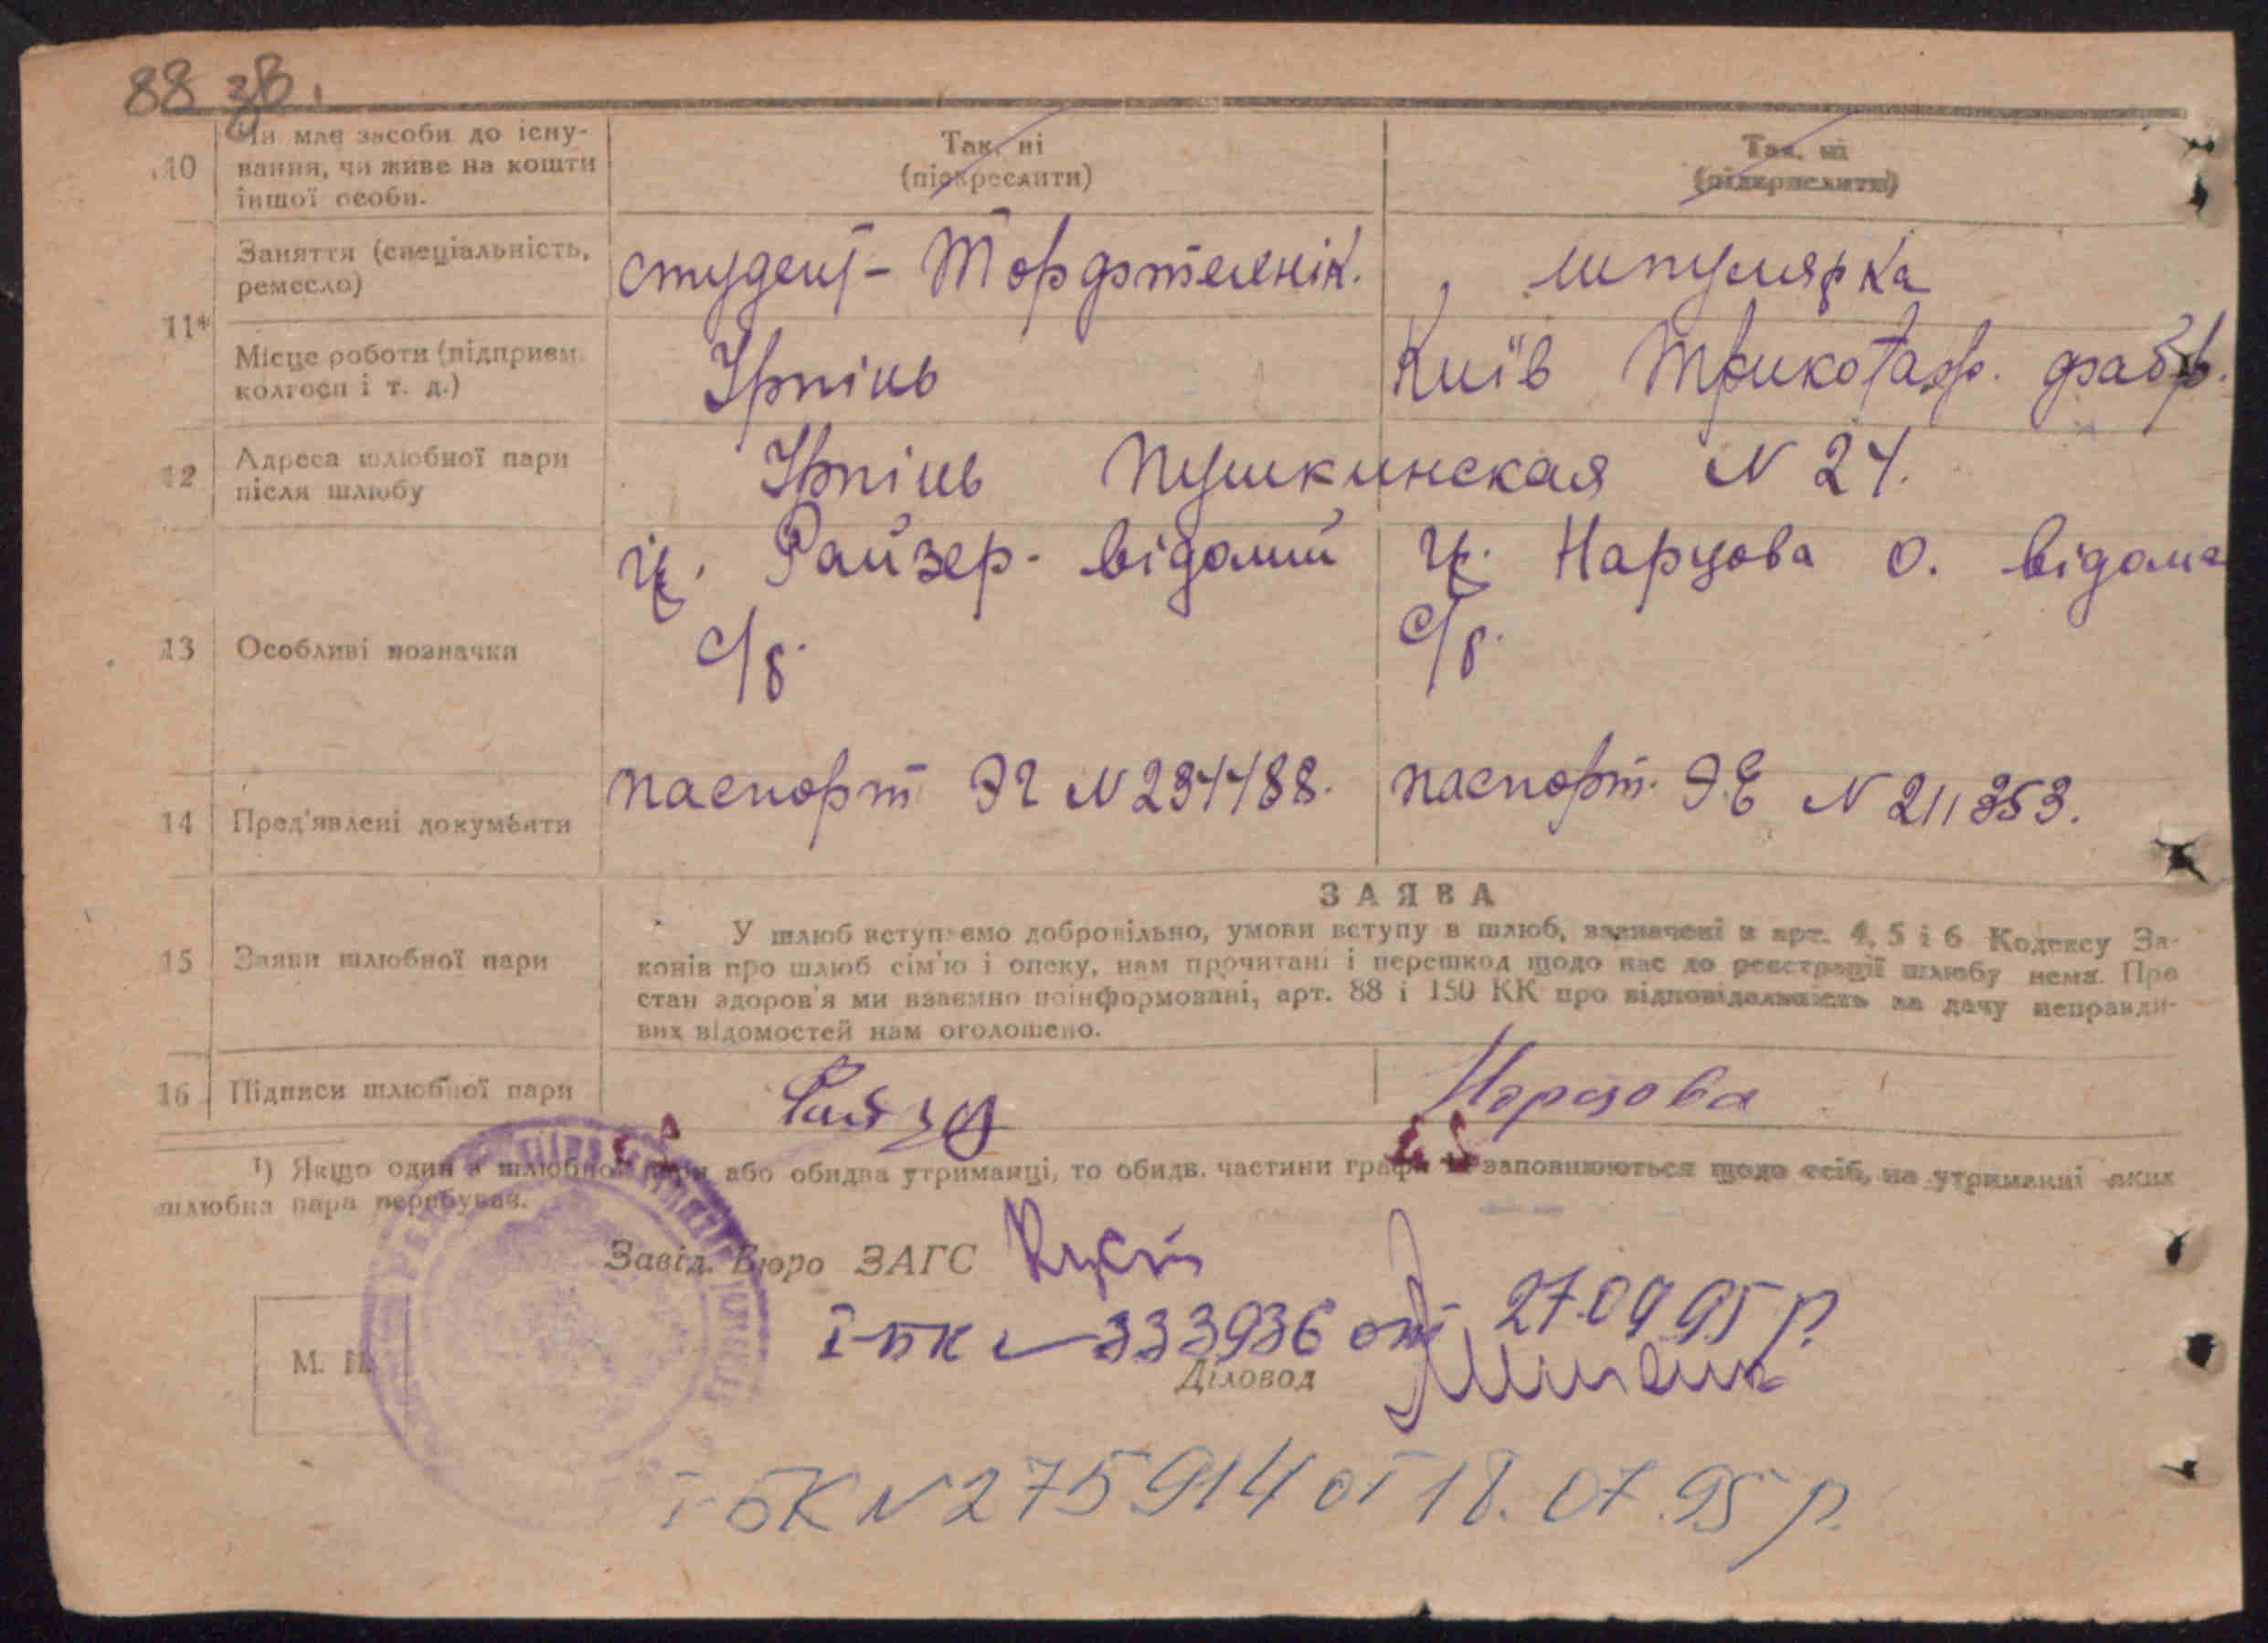 88 зв.
10 Чи має засоби до існу-
вання, чи живе на кошти
іншої особи.
Так, ні
(підкреслити)
Так, ні
(підкреслити)
11*
Заняття (спеціальність,
ремесло)
студент - Торфтехнік.
шпулярка
Місце роботи (підприєм.
колгосп і т. д.)
Ірпінь
Київ Трикотаж. фабр.
12 Адреса шлюбної пари
після шлюбу
Ірпінь Пушкинская N 24.
13 Особливі позначки
Райзер - відомий
с/в.
Нарцова О. відома
с/в.
14 Пред'явлені документи
паспорт ЭГ N 234488.
паспорт. Э.Е N 211353.
15 Заяви шлюбної пари
ЗАЯВА
У шлюб вступаємо добровільно, умови вступу в шлюб, зазначені в арт. 4, 5 і 6 Кодексу За-
конів про шлюб сім'ю і опеку, нам прочитані і перешкод щодо нас до реєстрації шлюбу нема. Про
стан здоров'я ми взаємно поінформовані, арт. 88 і 150 КК про відповідальність за дачу неправди-
вих відомостей нам оголошено.
16 Підписи шлюбної пари
Райзер
Нарцова
¹) Якщо один з шлюбної пари або обидва утриманці, то обидв. частини графи 11 заповнюються щодо осіб, на утриманні яких
шлюбна пара перебуває.
Завід. Бюро ЗАГС
І-БК N 333936 от 27.09.95 р.
М. П.
Діловод
І-БК N 275914 от 18.07.95 р.